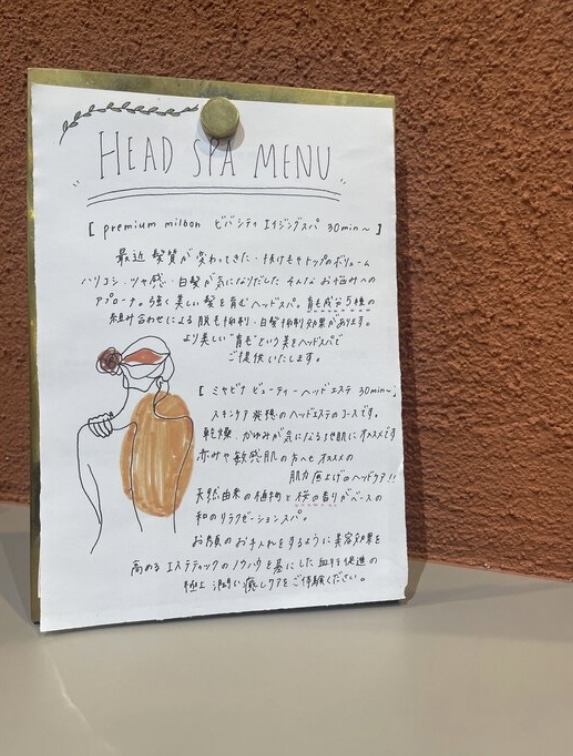 HEAD SPA MENU
[ premium milbon ビバシティ エイジングスパ 30min~ ]
最近 髪質が変わってきた・抜け毛やトップのボリューム
ハリコシ・ツヤ感・白髪が気になりだした そんなお悩みへの
アプローチ。強く美しい髪を育むヘッドスパ。育毛成分5種の
組み合わせによる脱毛抑制・白髪抑制効果があります。
より美しい"育毛"という美をヘッドスパで
ご提供いたします。
[ ミヤビナ ビューティーヘッドエステ 30min~ ]
スキンケア発想のヘッドエステのコースです。
乾燥・かゆみが気になる地肌にオススメです
赤みや敏感肌の方へもオススメの
肌力底上げのヘッドケア!!
天然由来の植物と桜の香りがベースの
和のリラクゼーションスパ。
お顔のお手入れをするように美容効果を
高めるエステティックのノウハウを基にした血行促進の
極上 深い癒しケアをご体験ください。